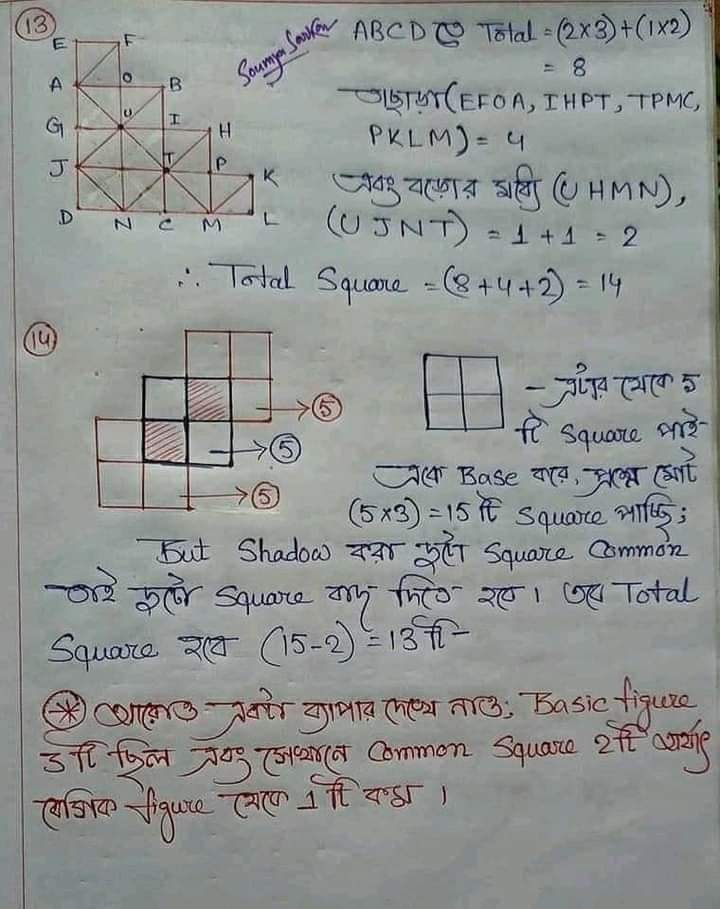 13
Soumya Sarkar
ABCD তে Total = (2x3)+(1x2)
= 8
তাছাড়া (EFOA, IHPT, TPMC,
PKLM) = 4
এবং বড়োর মধ্যে (UHMN),
(UJNT) = 1 + 1 = 2
∴ Total Square = (8+4+2) = 14
E F
A O B
G U I H
J T P K
D N C M L
14
5
5
5
- এটার থেকে 5
টি Square পাই-
একে Base করে, প্রশ্নে মোট
(5x3) = 15 টি Square পাচ্ছি;
But Shadow করা দুটো Square Common
তাই দুটো Square বাদ দিতে হবে। তবে Total
Square হবে (15-2) = 13 টি
* আরোও একটা ব্যাপার দেখে নাও; Basic figure
3 টি ছিল এবং সেখানে Common Square 2 টি অর্থাৎ
বেসিক figure থেকে 1 টি কম।